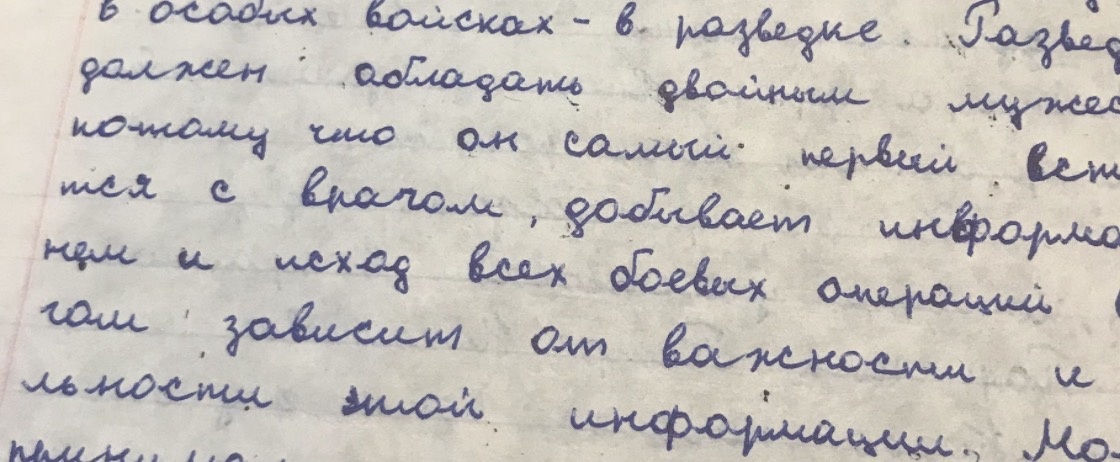 в особых войсках - в разведке. Развед
должен обладать двойным мужес
потому что он самый первый вст
тся с врагом, добывает информа
нем и исход всех боевых операций
гом зависит от важности и
льности этой информации. Мо-